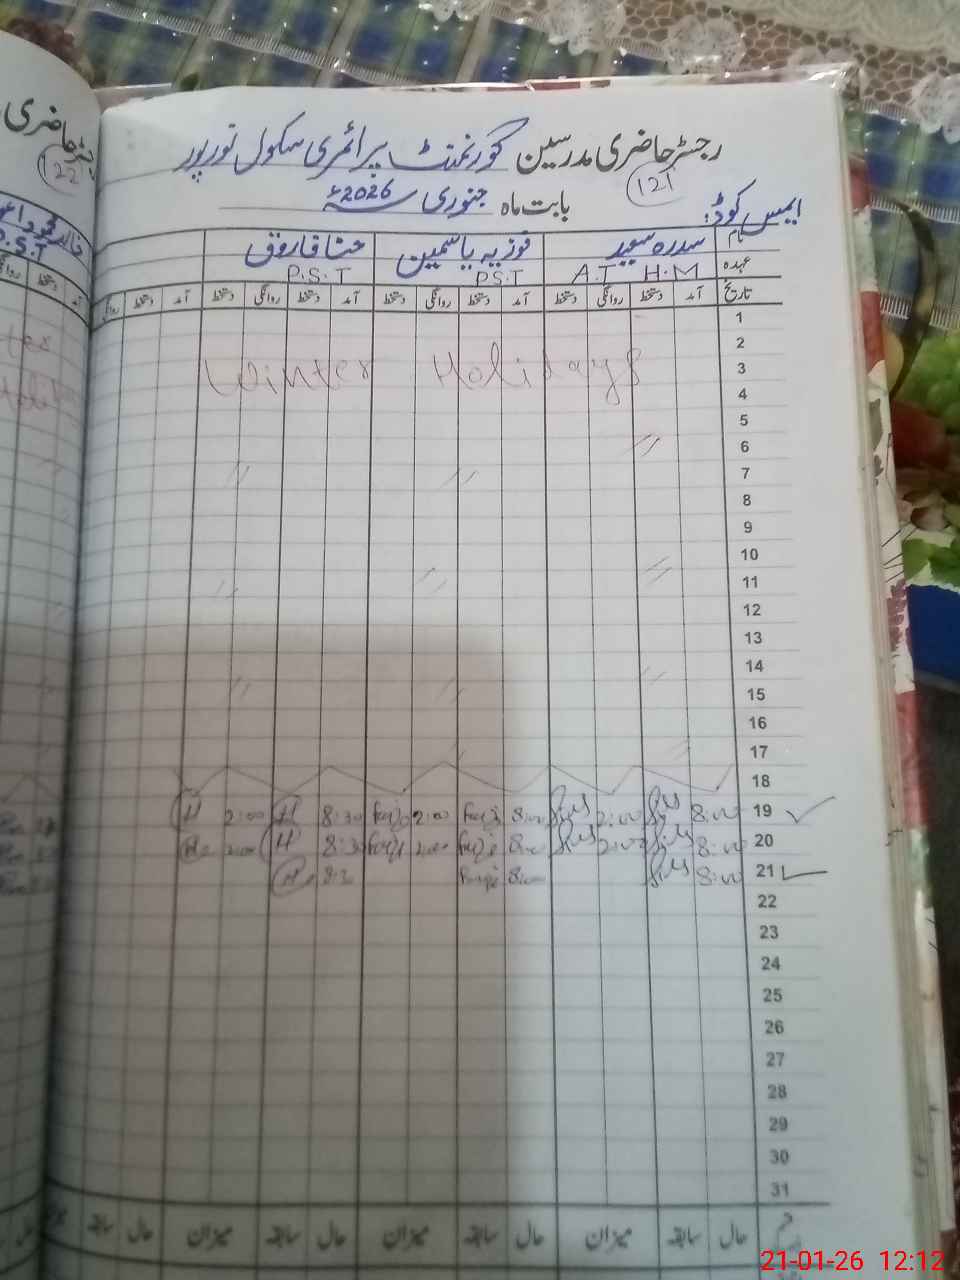 رجسٹر حاضری مدرسین گورنمنٹ پرائمری سکول نورپور
121
بابت ماہ جنوری 2026ء
ایمس کوڈ:
نام سدرہ سعید فوزیہ یاسمین حنا فاروق
عہدہ H.M A.T P.S.T P.S.T
تاریخ آمد دستخط روانگی دستخط آمد دستخط روانگی دستخط آمد دستخط روانگی دستخط آمد دستخط روانگی
1
2
3 Winter Holidays
4
5
6
7
8
9
10
11
12
13
14
15
16
17
18
19 8:00 2:00 8:00 2:00 8:30 H 2:00 H
20 8:00 2:00 8:00 2:00 8:30 H 2:00
21 8:00 8:00 8:30
22
23
24
25
26
27
28
29
30
31
حال سابقہ میزان حال سابقہ میزان حال سابقہ میزان حال سابقہ
رجسٹر حاضری
122
P.S.T
21-01-26 12:12